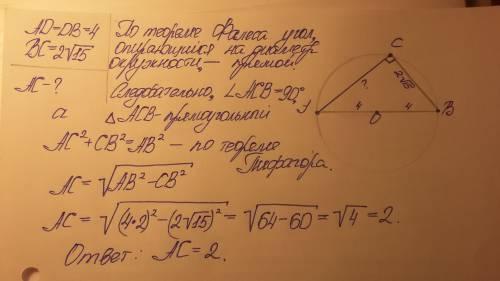 AD=DB=4
BC=2√15
AC-?
По теореме Фалеса угол,
опирающийся на диаметр
окружности, — прямой.
Следовательно, ∠ACB=90°
△ACB-прямоугольный
AC²+CB²=AB² — по теореме
Пифагора.
AC=√(AB²-CB²)
AC=√((4*2)²-(2√15)²)=√(64-60)=√4=2.
Ответ: AC=2.
C
?
2√15
4
4
O
B